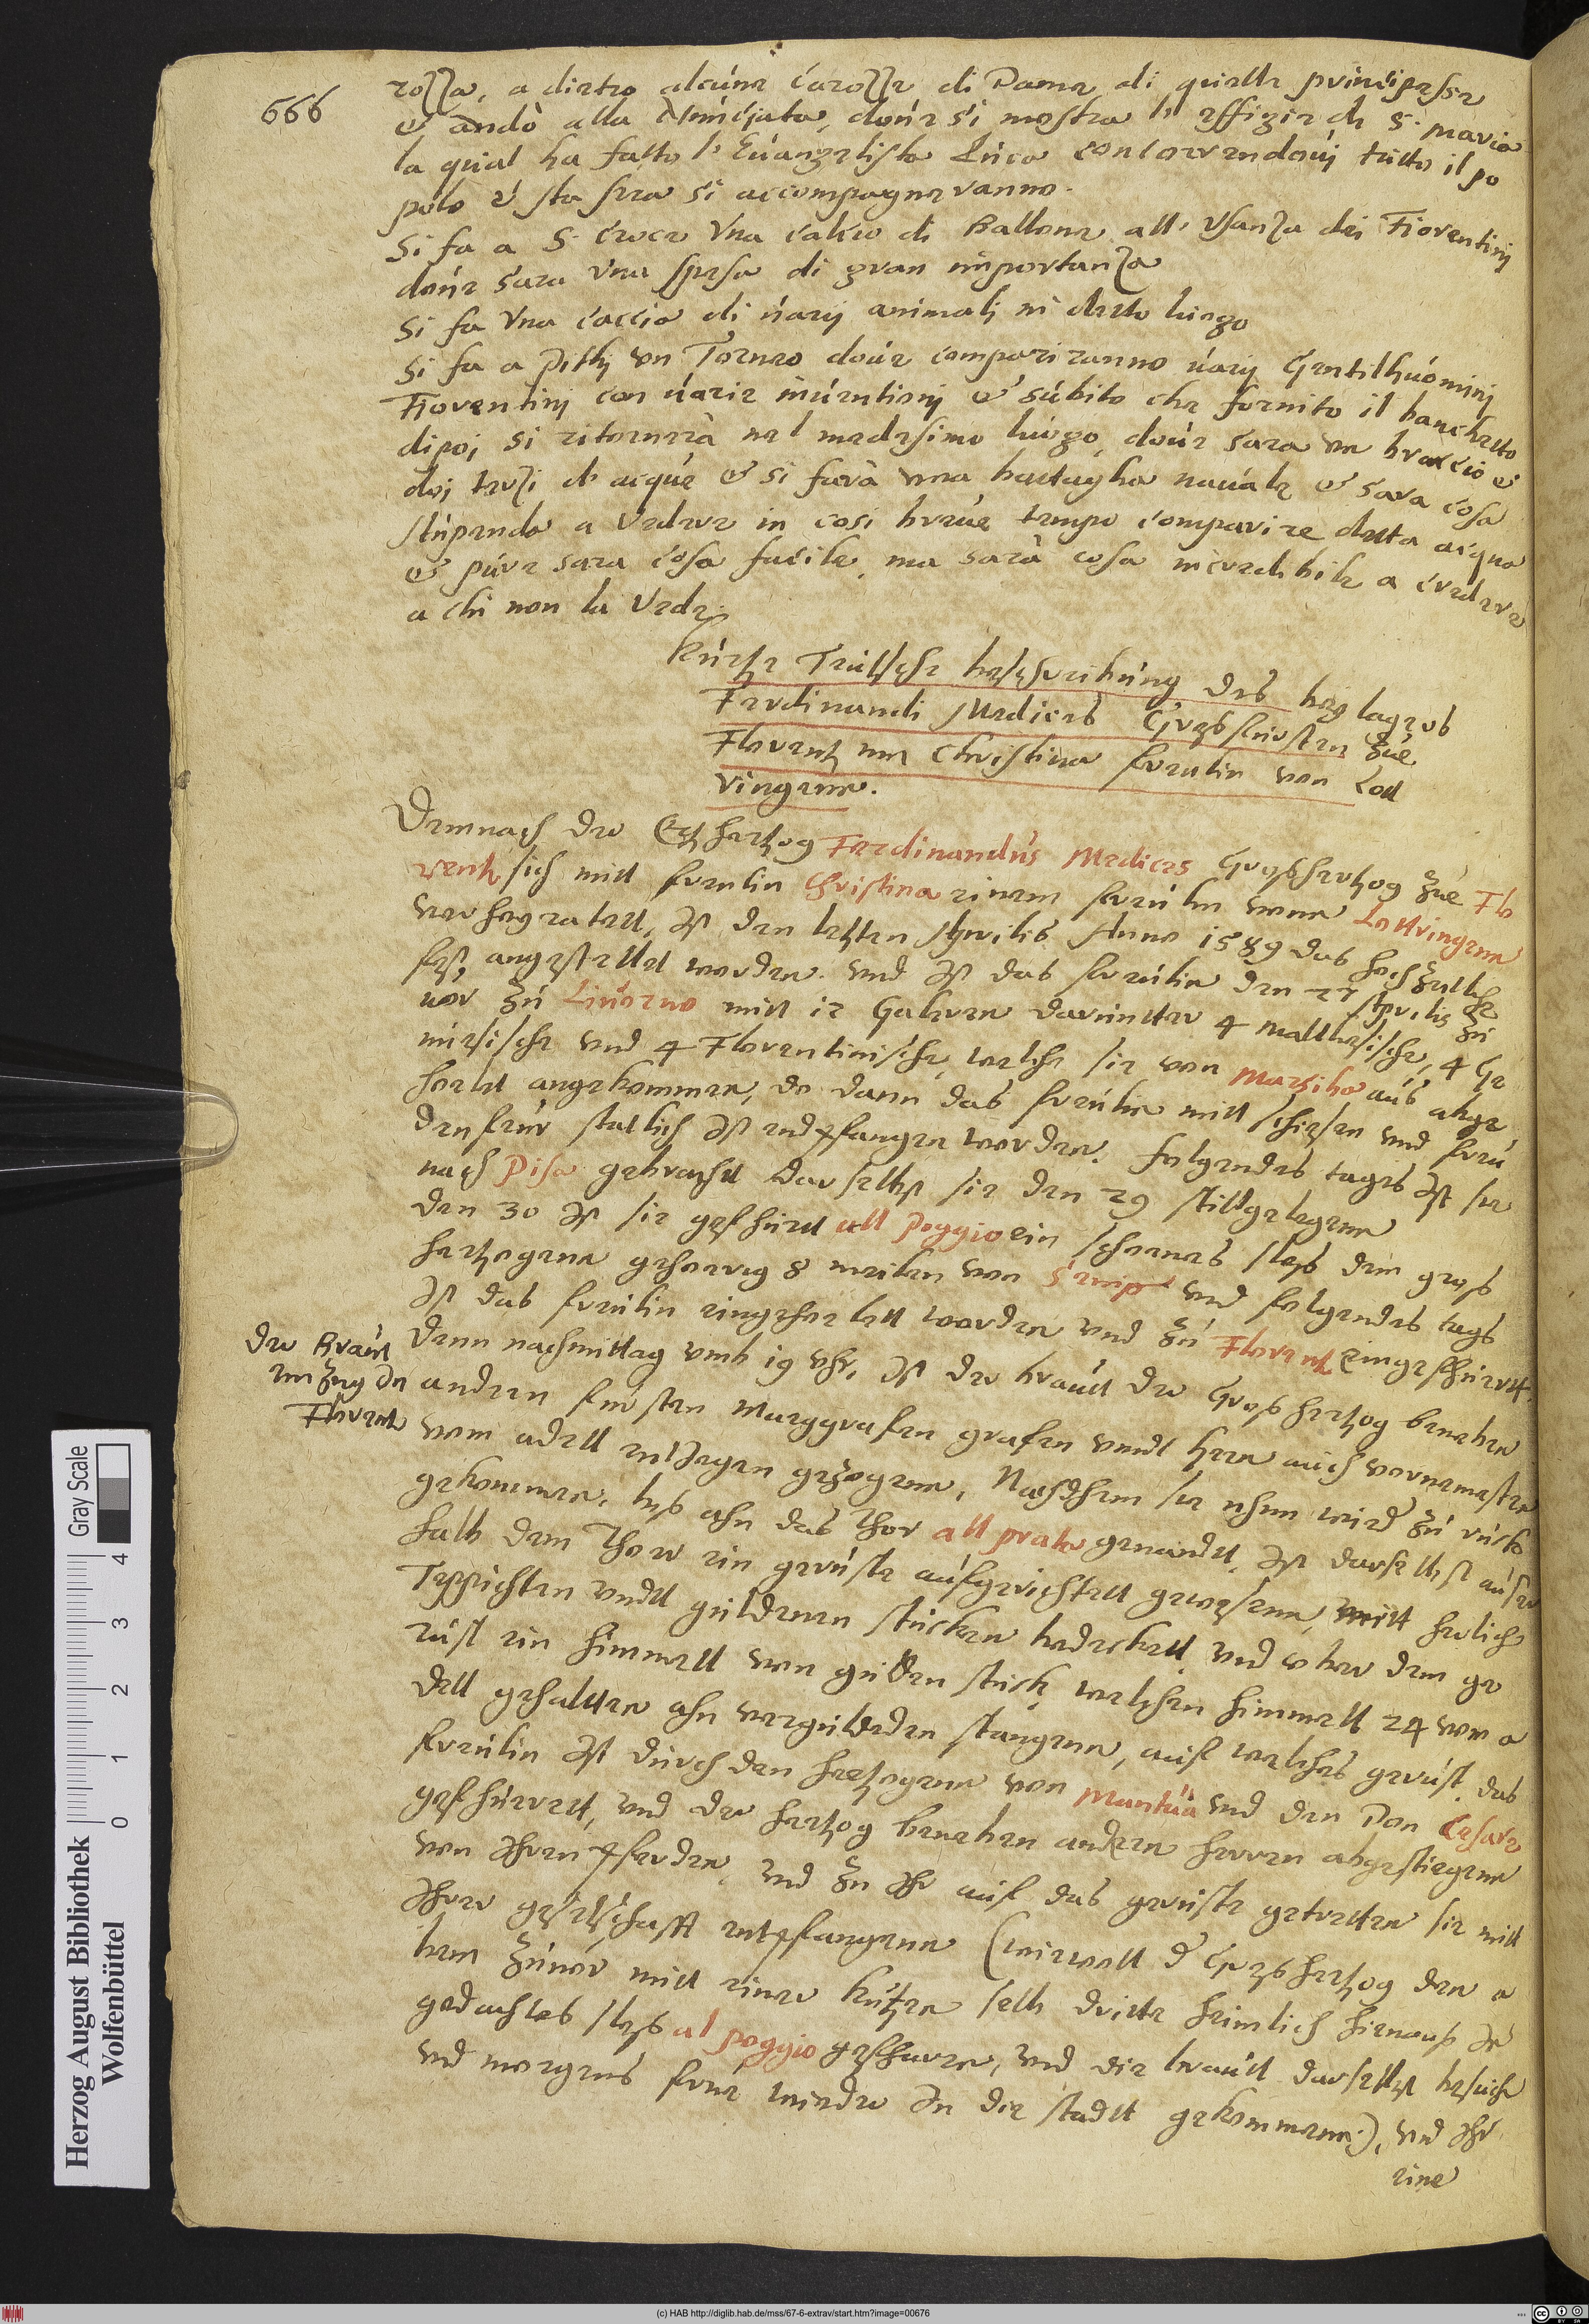 666
rozza, a dietro alcune carozze di Dame di quelle principesse
& andò alla Nunciata, doúe si mostra l' effigie de S. Maria
la qual ha fatto l' Euangelista Luca concorrendouj tutto il po
polo e sta sera si accompagneranno.
Si fa a S. Croce Vna calcio di Ballone all' Vsanza dei Fiorentinj
doúe sara Vna spesa di gran importanza
Si fa Vna caccia di úarij animalj in detto luogo
Si fa a Pithj vn Torneo doúe compariranno úarij Gentilhuóminj
Fiorentinj con úarie inúentionj & súbito che fornito il banchetto
dipoj si ritornerà nel medesimo luogo, doúe sara vn braccio e
doj terzi d' acque & si farà vna battaglia naúale & sara cosa
stupenda a Vedere in cosi breúe tempo comparire detta acqua
& púre sara cosa facile, ma sarà cosa incredibile a credere
a chi non la Vede.
Kurtze Teutsche beschreibung des beylagers
Ferdinandi Medices Grosfursten zue
Florentz mit Christina freulin von Lott
ringenn.
Demnach der Ertzhertzog Ferdinandus Medices Großhertzog zue Flo
rentz sich mitt freulin Christina einem freulin vonn Lottringenn
verheyratett, Ist den letzten Aprilis Anno 1589 das hochzeitliche
fest, angestellet worden. vnd Ist das freulin den 27 Aprilis zu
uor zu Liuorno mitt 12 Galeren darunter 4 malthesische, 4 Ge
nuesische vnd 4 Florentinische, welche sie von Marsilia aus abge
holet angekommen, do dann das freulin mitt schiessen vnd freu
denfeur statlich Ist endpfangen worden. folgendes tages Ist sie
nach Pisa gebracht darselbst sie den 29 stillgelegenn
den 30 Ist sie gefhurt all Poggio ein schoenes sloß dem groß
hertzogenn gehoerig 8 meilen von und folgendes tags
Ist das freulin eingeholett worden vnd zu Florentz eingefhurett.
Der Braut
einzug In
Florentz
Denn nachmittag vmb 19 vhr, Ist der braut der Großhertzog beneben
andern fursten Marggrafen grafen vnndt hern auch vornemesten
vom adell entJegen gezogenn, Nachdhem sie nhun wird zu ruck
gekommen, bis ahn das thor all prato genandtt, Ist darselbest ausser
halb dem Thore ein geruste aufgerichtett gewesenn, mitt herlichen
Teppichten vndtt guldenen stucken bedeckett, vnd ober dem ge
rust ein himmell von gulden stuck, welchen himmell 24 von a
dell gehalten ahn verguldeden stangenn, auf welches gerust, das
freulin Ist durch den hertzogenn von Mantua vnd den Don Cesare
gefhurett, vnd der hertzog beneben andern herren abgestiegenn
von Ihren Pferden, vnd zu Ihr auf das geruste getretten sie mitt
Ihrer geselschafft entpfangenn (wiewoll d Großhertzog den a
bent zuuor mitt einer kutzen selb dritte heimlich hienaus In
gedachtes sloß al poggio gefharen, vnd die braut darselbst besucht
vnd morgens frue wieder In die stadt gekommenn.), vnd Ihr
eine
Herzog August Bibliothek
Wolfenbüttel
Gray Scale
0 1 2 3 4
(c) HAB http://diglib.hab.de/mss/67-6-extrav/start.htm?image=00676